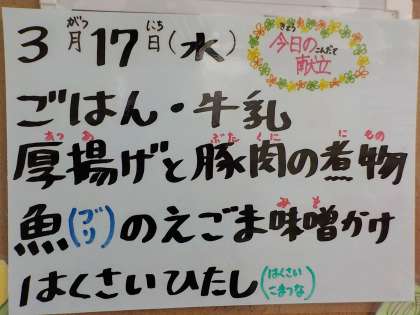 3月17日(水)
がつ にち
きょう こんだて
今日の
献立
ごはん・牛乳
あつ あ ぶた にく に もの
厚揚げと豚肉の煮物
み そ
魚(ブリ)のえごま味噌かけ
はくさいひたし(はくさい
こまつな)